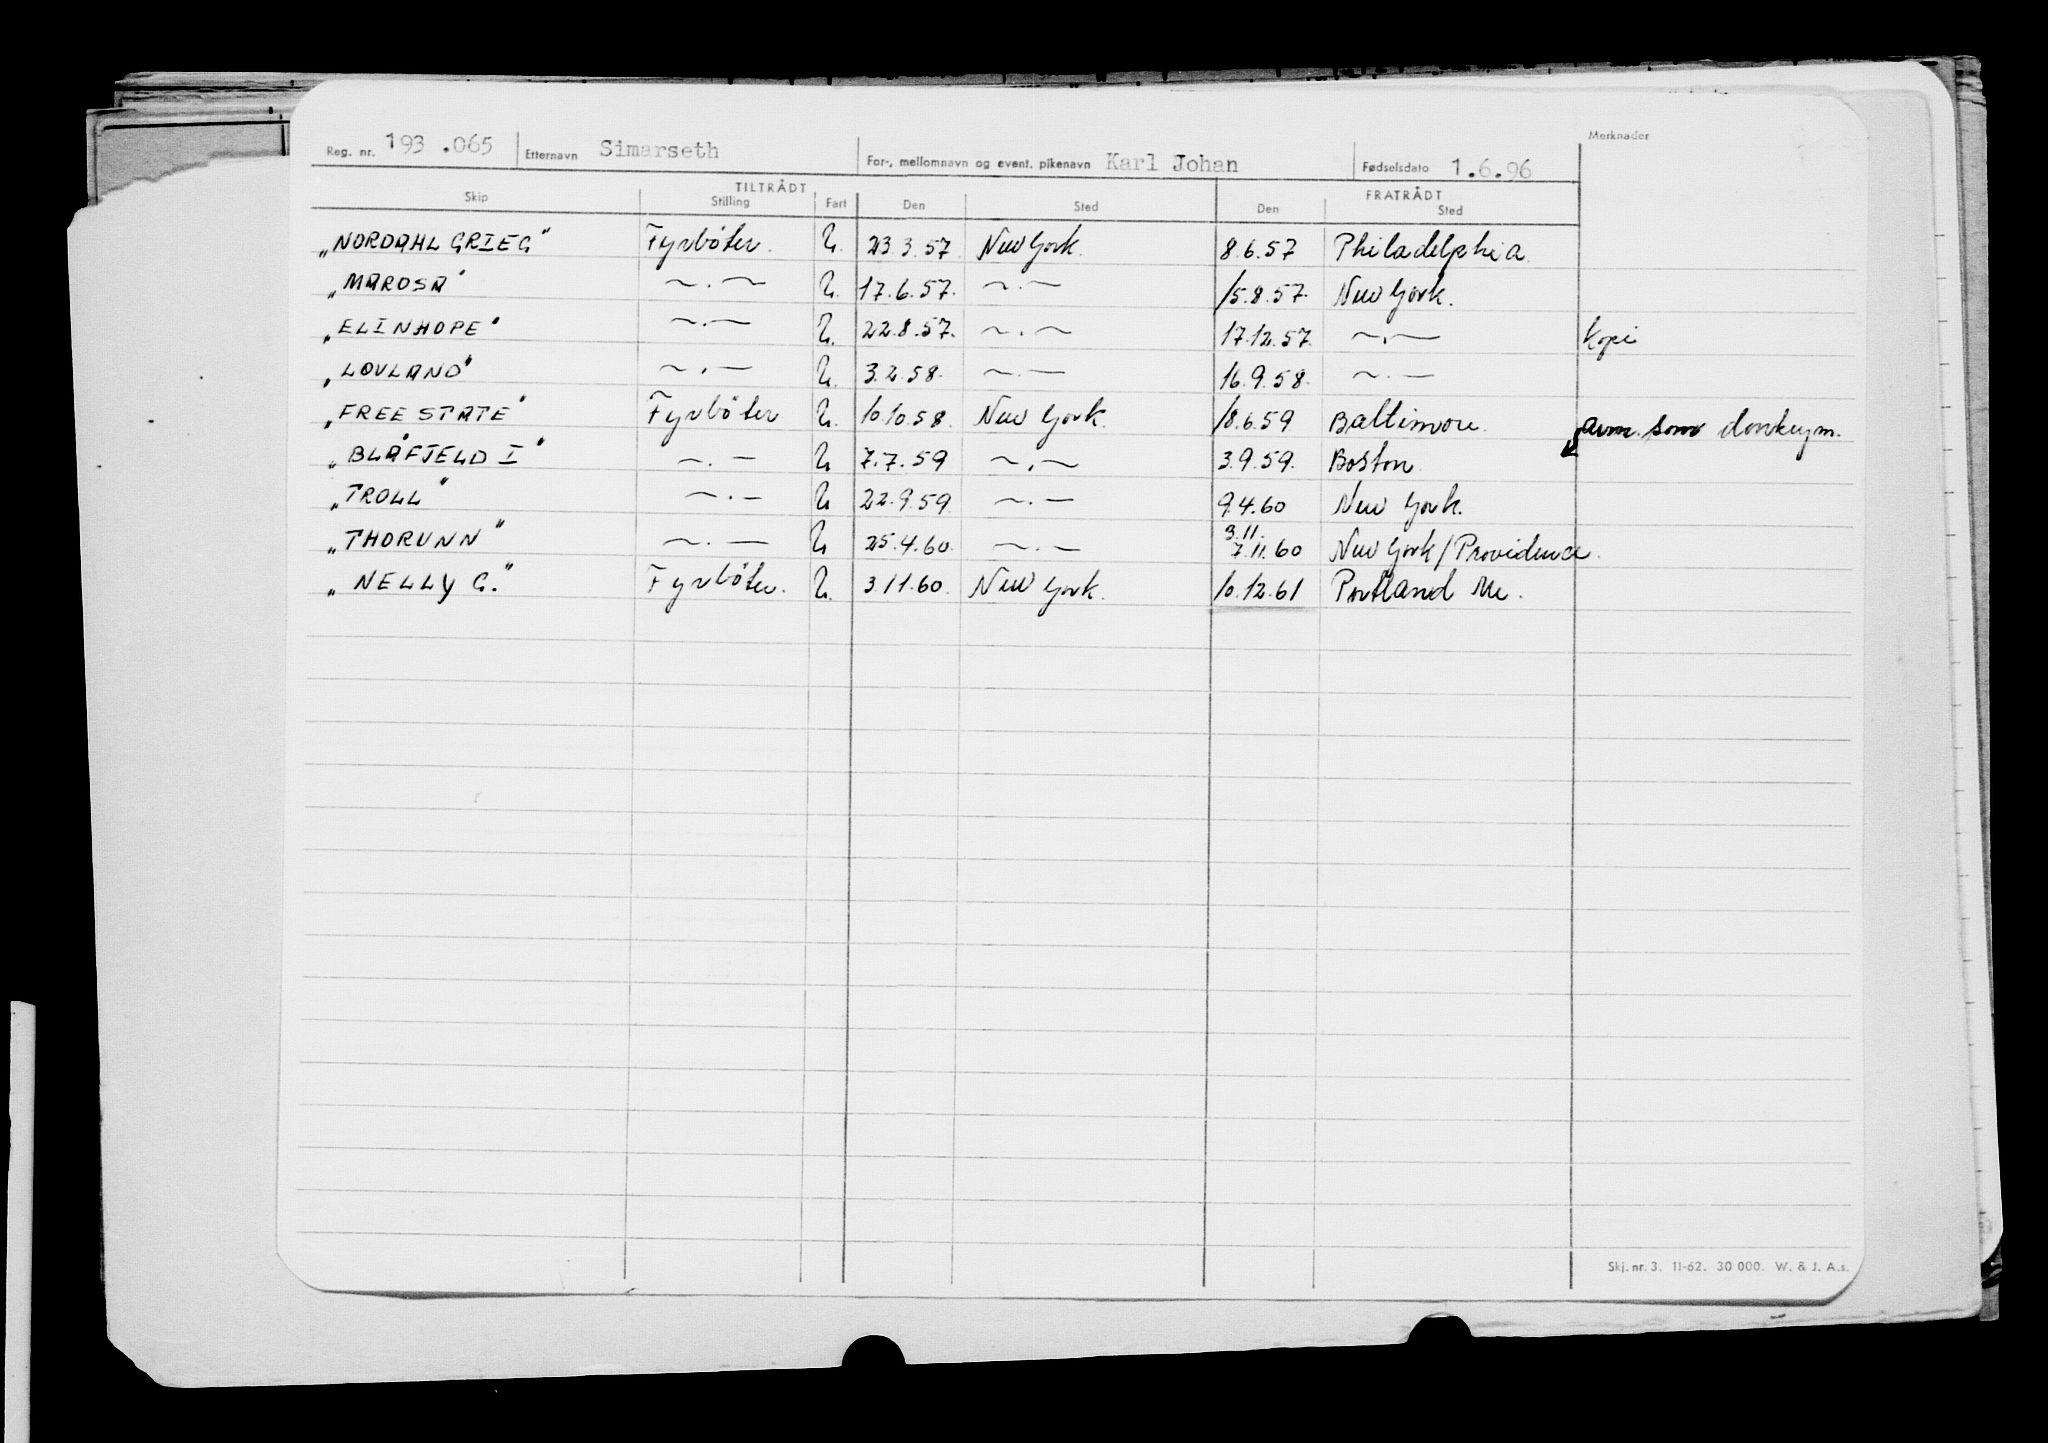 Reg. nr. 193.065 Etternavn Simarseth For-, mellomnavn og event. pikenavn Karl Johan Fødselsdato 1.6.96 Merknader
TILTRÅDT FRATRÅDT
Skip Stilling Fart Den Sted Den Sted
„NORDAHL GRIEG" Fyrbøter. U. 23.3.57 New York. 8.6.57 Philadelphia.
„MAROSA" ~.~ U. 17.6.57. ~.~ 15.8.57. New York.
„ELINHOPE" ~.~ U. 22.8.57. ~.~ 17.12.57. ~.~ kopi
„LOVLAND" ~.~ U. 3.2.58. ~.~ 16.9.58. ~.~
„FREE STATE" Fyrbøter U. 10.10.58. New York. 18.6.59 Baltimore. avm. som donkeym.
„BLÅFJELD I" ~.~ U 7.7.59 ~.~ 3.9.59. Boston.
„TROLL" ~.~ U 22.9.59 ~.~ 9.4.60 New York.
„THORUNN" ~.~ U 25.4.60. ~.~ 3.11. 7.11.60 New York/Providence.
„NELLY G." Fyrbøter. U. 3.11.60. New York. 10.12.61 Portland Me.
Skj. nr. 3. 11-62. 30 000. W. & J. A.s.